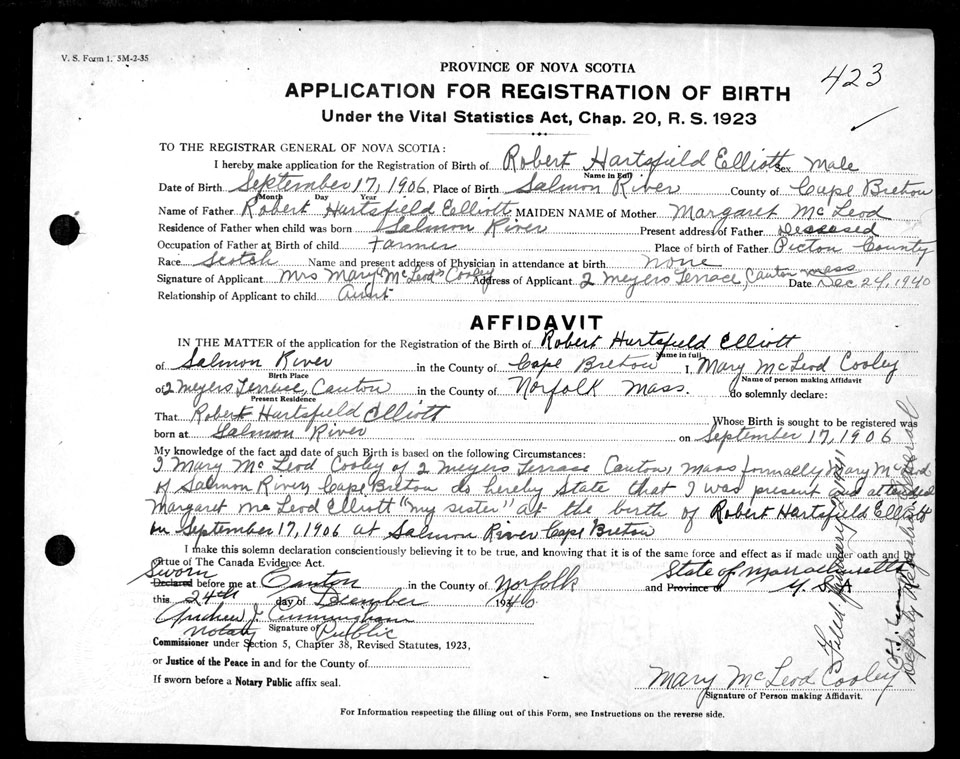 V. S. Form 1. 5M-2-35
423
PROVINCE OF NOVA SCOTIA
APPLICATION FOR REGISTRATION OF BIRTH
Under the Vital Statistics Act, Chap. 20, R. S. 1923
TO THE REGISTRAR GENERAL OF NOVA SCOTIA:
I hereby make application for the Registration of Birth of Robert Hartsfield Elliott Sex Male
Name in Full
Date of Birth September 17, 1906 Place of Birth Salmon River County of Cape Breton
Month Day Year
Name of Father Robert Hartsfield Elliott MAIDEN NAME of Mother Margaret McLeod
Residence of Father when child was born Salmon River Present address of Father Deceased
Occupation of Father at Birth of child Farmer Place of birth of Father Picton County
Race Scotch Name and present address of Physician in attendance at birth none
Signature of Applicant Mrs Mary McLeod Cooley Address of Applicant 2 Meyers Terrace, Canton Mass Date Dec 24, 1940
Relationship of Applicant to child Aunt
AFFIDAVIT
IN THE MATTER of the application for the Registration of the Birth of Robert Hartsfield Elliott
Name in full
of Salmon River in the County of Cape Breton I, Mary McLeod Cooley
Birth Place Name of person making Affidavit
of 2 Meyers Terrace, Canton in the County of Norfolk Mass. do solemnly declare:
Present Residence
That Robert Hartsfield Elliott Whose Birth is sought to be registered was
born at Salmon River on September 17, 1906
My knowledge of the fact and date of such Birth is based on the following Circumstances:
I Mary McLeod Cooley of 2 Meyers Terrace Canton, Mass formally Mary McLeod
of Salmon River, Cape Breton do hereby State that I was present and attended
Margaret McLeod Elliott "my sister" at the birth of Robert Hartsfield Elliott
on September 17, 1906 at Salmon River Cape Breton
I make this solemn declaration conscientiously believing it to be true, and knowing that it is of the same force and effect as if made under oath and by
virtue of The Canada Evidence Act.
Sworn
Declared before me at Canton in the County of Norfolk and Province of State of Massachusetts
U.S.A
this 24th day of December 1940
Andrew J. Cunningham
Notary Signature of Public
Commissioner under Section 5, Chapter 38, Revised Statutes, 1923,
or Justice of the Peace in and for the County of
If sworn before a Notary Public affix seal.
Mary McLeod Cooley
Signature of Person making Affidavit.
For Information respecting the filling out of this Form, see Instructions on the reverse side.
Filed January
Deputy Registrar General